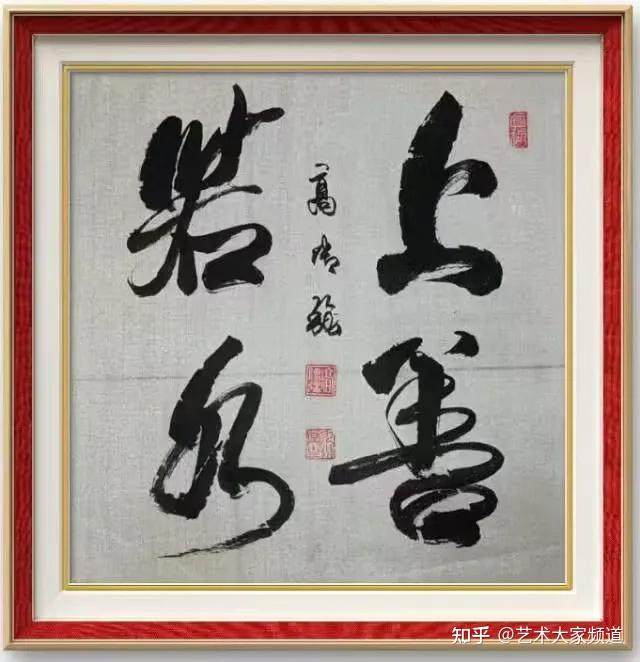 上善
若水
知乎 @艺术大家频道